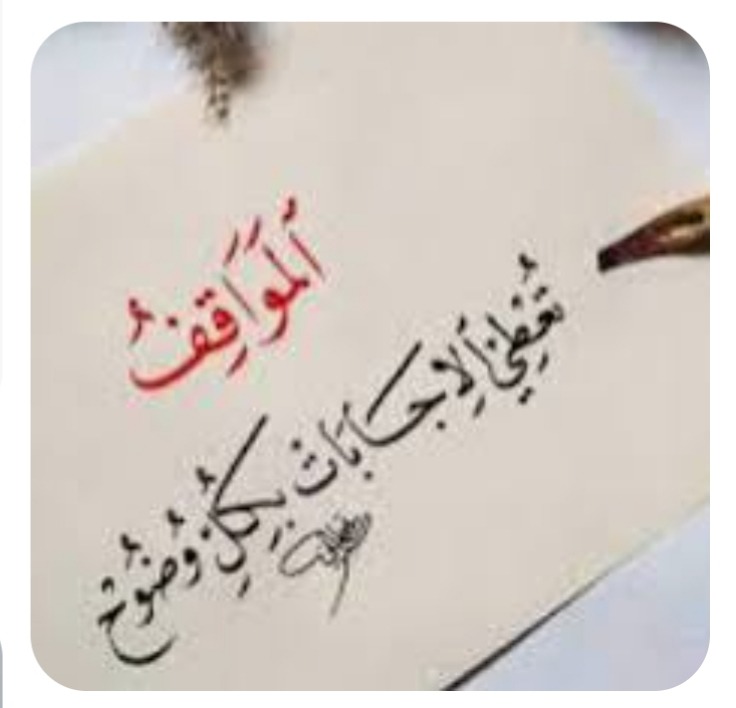 اَلمَوَاقِفُ
تُعْطِي اَلِاجَابَاتْ بِكُلِّ وُضُوحْ